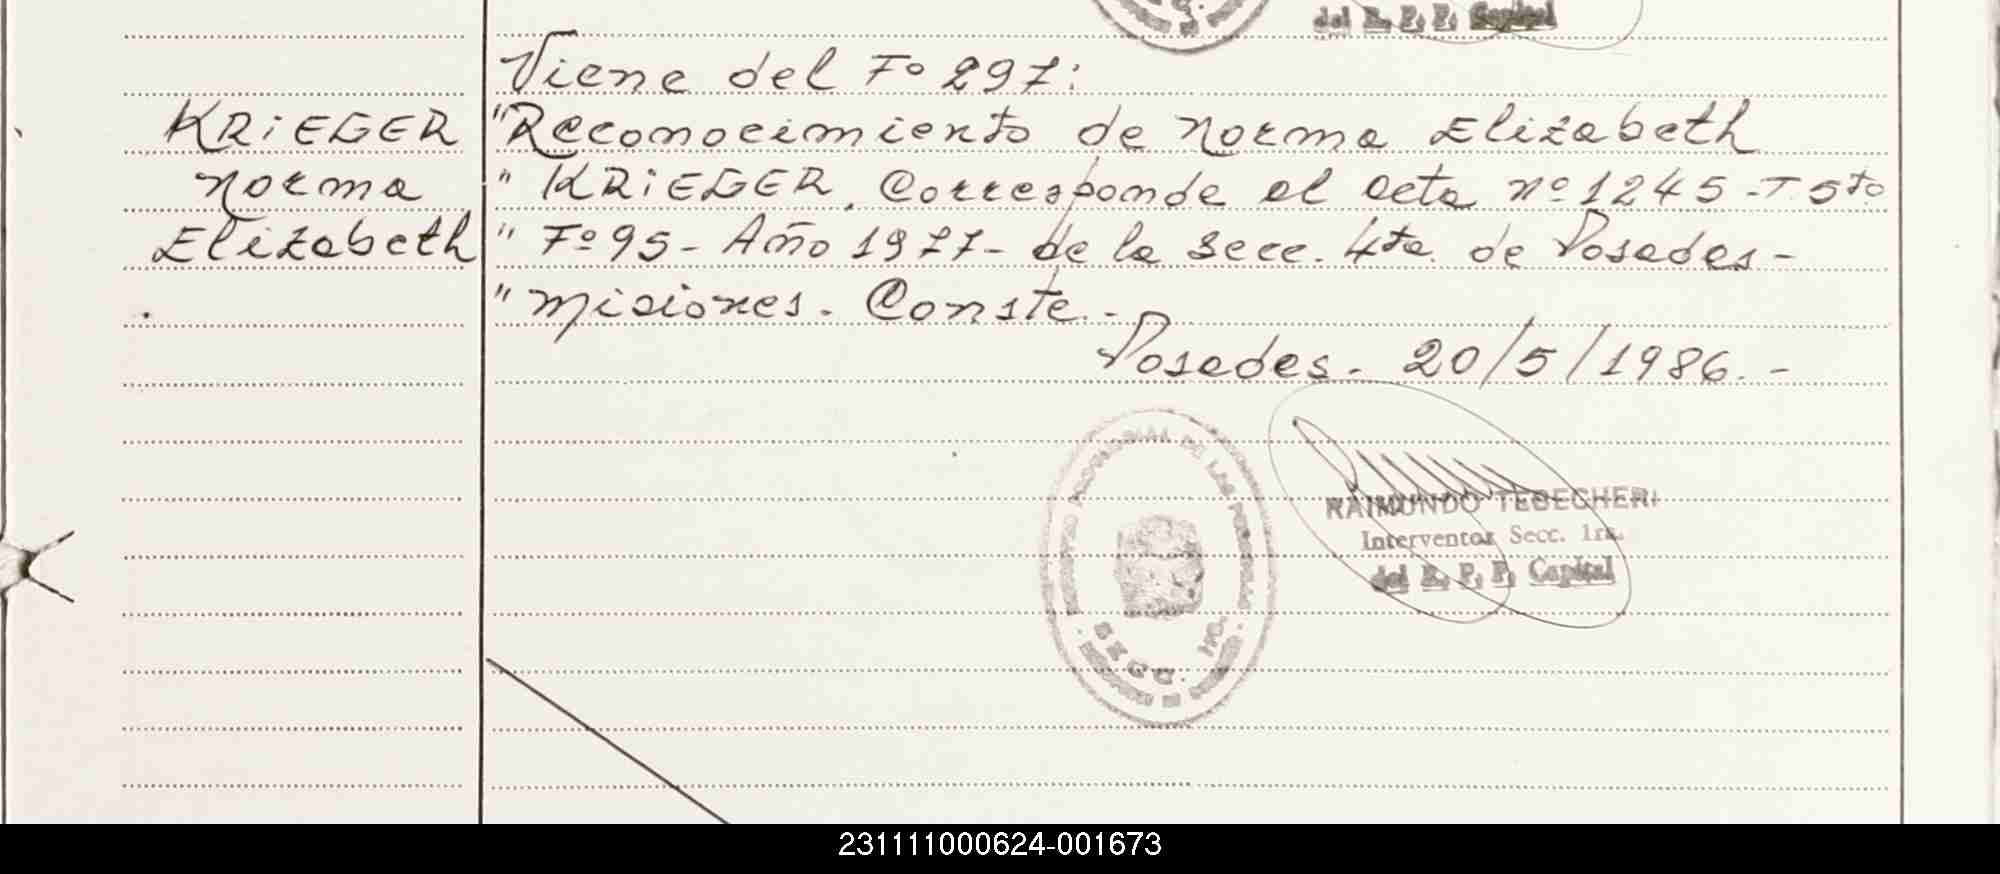 del R. P. P. Capital
Viene del Fo 297:
KRiEGER "Reconocimiento de Norma Elizabeth
Norma " KRiEGER. Corresponde al acta nº 1245 - T. 5to
Elizabeth " Fº 95 - Año 1977 - de la Secc. 4ta. de Posadas -
" Misiones. Conste. -
Posadas. 20/5/1986. -
RAIMUNDO TEBECHERI
Interventor Secc. 1ra.
del R. P. P. Capital
PROVINCIAL DE LAS PERSONAS
SECC.
231111000624-001673